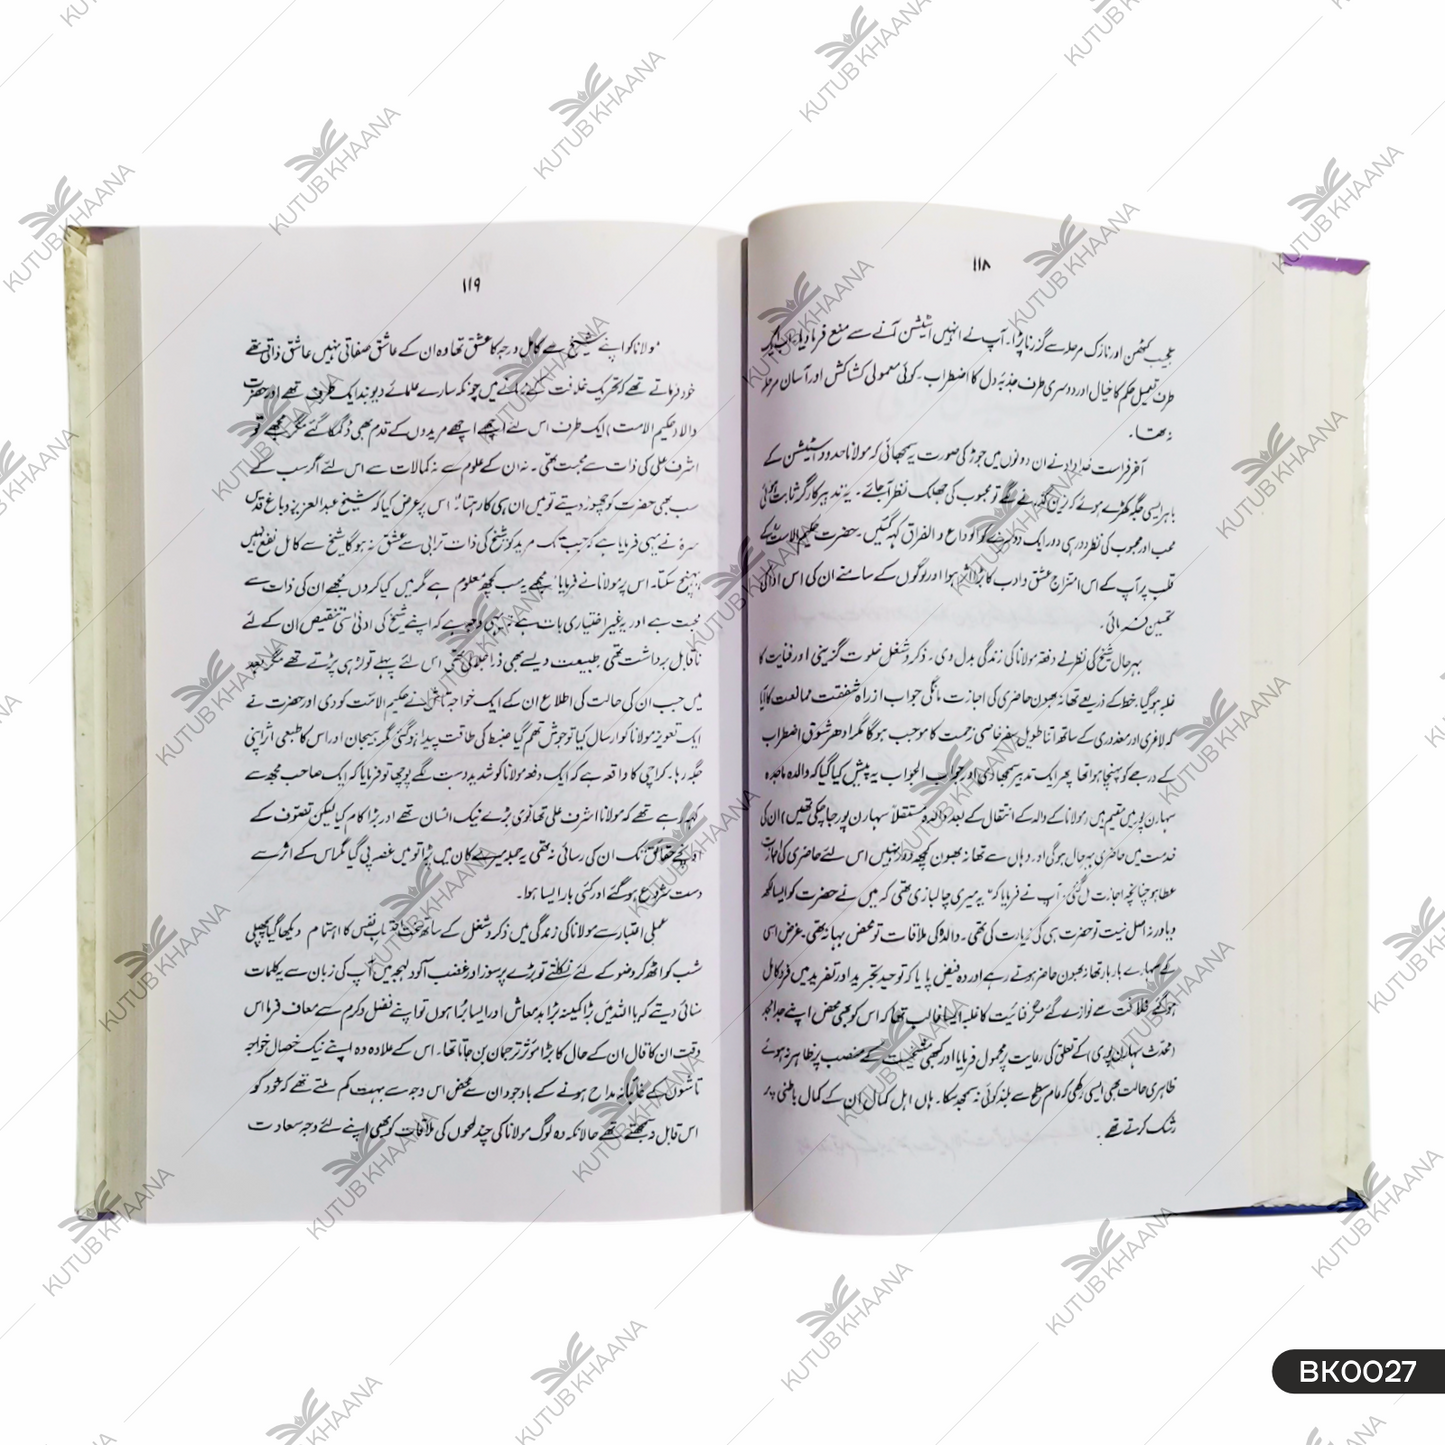 ۱۱۸
عجیب کٹھن اور نازک مرحلہ سے گزرنا پڑا۔ آپ نے انہیں اسٹیشن آنے سے منع فرما دیا۔ اب ایک
طرف تعمیل حکم کا خیال اور دوسری طرف جذبۂ دل کا اضطراب۔ کوئی معمولی کشاکش اور آسان مرحلہ
نہ تھا۔
آخر فراست خداداد نے ان دونوں میں جوڑ کی صورت یہ سمجھائی کہ مولانا حدود اسٹیشن کے
باہر ایسی جگہ کھڑے ہوئے کہ ٹرین گزرنے لگے تو محبوب کی جھلک نظر آجائے۔ یہ تدبیر کارگر ثابت ہوئی
محب اور محبوب کی نظر دور ہی دور ایک دوسرے کو الوداع و الفراق کہہ گئیں۔ حضرت حکیم الامت کے
قلب پر آپ کے اس امتزاج عشق و ادب کا بڑا اثر ہوا اور لوگوں کے سامنے ان کی اس ادا کی
تحسین فرمائی۔
بہرحال شیخ کی نظر نے دفعۃ مولانا کی زندگی بدل دی۔ ذکر و شغل خلوت گزینی اور فنایت کا
غلبہ ہوگیا۔ خط کے ذریعے تھانہ بھون حاضری کی اجازت مانگی جواب ازراہ شفقت ممانعت کا آیا
کہ لاغری اور معذوری کے ساتھ اتنا طویل سفر خاصی زحمت کا موجب ہوگا مگر ادھر شوق اضطراب
کے درجے کو پہنچا ہوا تھا پھر ایک تدبیر سمجھا دی اور جواب الجواب یہ پیش کیا گیا کہ والدہ ماجدہ
سہارن پور میں مقیم ہیں (مولانا کے والد کے انتقال کے بعد والدہ مستقلاً سہارن پور جا چکی تھیں) ان کی
خدمت میں حاضری بہرحال ہوگی اور وہاں سے تھانہ بھون کچھ دور نہیں اس لئے حاضری کی اجازت
عطا ہو چنانچہ اجازت مل گئی۔ آپ نے فرمایا کہ "یہ میری چالبازی تھی کہ میں نے حضرت کو ایسا لکھ
دیا ورنہ اصل نیت تو حضرت ہی کی زیارت کی تھی۔ والدہ کی ملاقات تو محض بہانہ تھی۔ غرض اسی
کے سہارے بار بار تھانہ بھون حاضر ہوتے رہے اور وہ فیض پایا کہ توحید تجرید اور تفرید میں فرد کامل
ہو گئے خلافت سے نوازے گئے مگر فنائیت کا غلبہ ایسا غالب تھا کہ اس کو بھی محض اپنے جد امجد
(محدث سہارن پوری) کے تعلق کی رعایت پر محمول فرمایا اور کبھی مشیخت کے منصب پر ظاہر نہ ہوئے
ظاہری حالت بھی ایسی رکھی کہ عام سطح سے بلند کوئی نہ سمجھ سکا۔ ہاں اہل کمال ان کے کمال باطنی پر
رشک کرتے تھے۔
۱۱۹
مولانا کو اپنے شیخ سے کامل درجہ کا عشق تھا وہ ان کے عاشق صفاتی نہیں عاشق ذاتی تھے
خود فرماتے تھے کہ تحریک خلافت کے زمانے میں چونکہ سارے علمائے دیوبند ایک طرف تھے اور حضرت
والا (حکیم الامت) ایک طرف اس لئے اچھے اچھے مریدوں کے قدم بھی ڈگمگا گئے مگر مجھے تو
اشرف علی کی ذات سے محبت تھی۔ نہ ان کے علوم سے نہ کمالات سے اس لئے اگر سب کے
سب بھی حضرت کو چھوڑ دیتے تو میں ان ہی کا رہتا"۔ اس پر عرض کیا کہ شیخ عبد العزیز دباغ قدس
سرہ نے یہی فرمایا ہے کہ جب تک مرید کو شیخ کی ذات ترابی سے عشق نہ ہوگا شیخ سے کامل نفع نہیں
پہنچ سکتا۔ اس پر مولانا نے فرمایا "مجھے یہ سب کچھ معلوم ہے مگر میں کیا کروں مجھے ان کی ذات سے
محبت ہے اور یہ غیر اختیاری بات ہے" یہی وجہ ہے کہ اپنے شیخ کی ادنیٰ سی تنقیص ان کے لئے
ناقابل برداشت تھی طبیعت ویسے بھی ذرا جلالی تھی اس لئے پہلے تو لڑ ہی پڑتے تھے مگر بعد
میں جب ان کی حالت کی اطلاع ان کے ایک خواجہ تاش نے حکیم الامت کو دی اور حضرت نے
ایک تعویز مولانا کو ارسال کیا تو جوش تھم گیا ضبط کی طاقت پیدا ہو گئی مگر ہیجان اور اس کا طبعی اثر اپنی
جگہ رہا۔ کراچی کا واقعہ ہے کہ ایک دفعہ مولانا کو شدید دست لگے پوچھا تو فرمایا کہ ایک صاحب مجھ سے
کہہ رہے تھے کہ مولانا اشرف علی تھانوی بڑے نیک انسان تھے اور بڑا کام کیا لیکن تصوف کے
اونچے حقائق تک ان کی رسائی نہ تھی یہ جملہ میرے کان میں پڑا تو میں غصہ پی گیا مگر اس کے اثر سے
دست شروع ہو گئے اور کئی بار ایسا ہوا۔
عملی اعتبار سے مولانا کی زندگی میں ذکر و شغل کے ساتھ محاسبہ نفس کا اہتمام دیکھا گیا پچھلی
شب کو اٹھ کر وضو کے لئے نکلتے تو بڑے پرسوز اور غضب آلود لہجہ میں آپ کی زبان سے یہ کلمات
سنائی دیتے کہ یا اللہ میں بڑا کمینہ بڑا بدمعاش اور ایسا برا ہوں تو اپنے فضل و کرم سے معاف فرما اس
وقت ان کا قال ان کے حال کا بڑا مؤثر ترجمان بن جاتا تھا۔ اس کے علاوہ وہ اپنے نیک خصال خواجہ
تاشوں کے غائبانہ مداح ہونے کے باوجود ان سے محض اس وجہ سے بہت کم ملتے تھے کہ خود کو
اس قابل نہ سمجھتے تھے حالانکہ وہ لوگ مولانا کی چند لمحوں کی ملاقات کو بھی اپنے لئے وجہ سعادت
BK0027